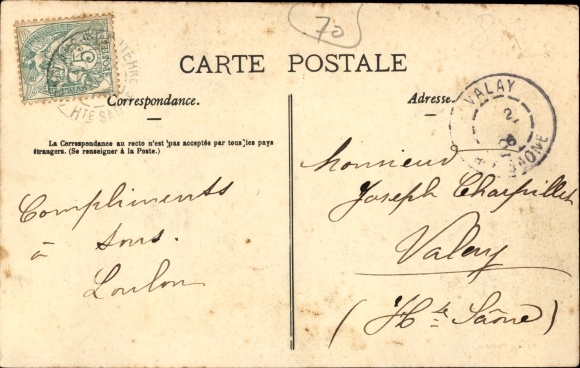 70
CARTE POSTALE
Correspondance.
Adresse.
La Correspondance au recto n'est pas acceptée par tous les pays
étrangers. (Se renseigner à la Poste.)
VALAY
Hte SAÔNE
Monsieur
Joseph Charpillet
Valay
(Hte Saône)
Compliments
à tous.
Loulou